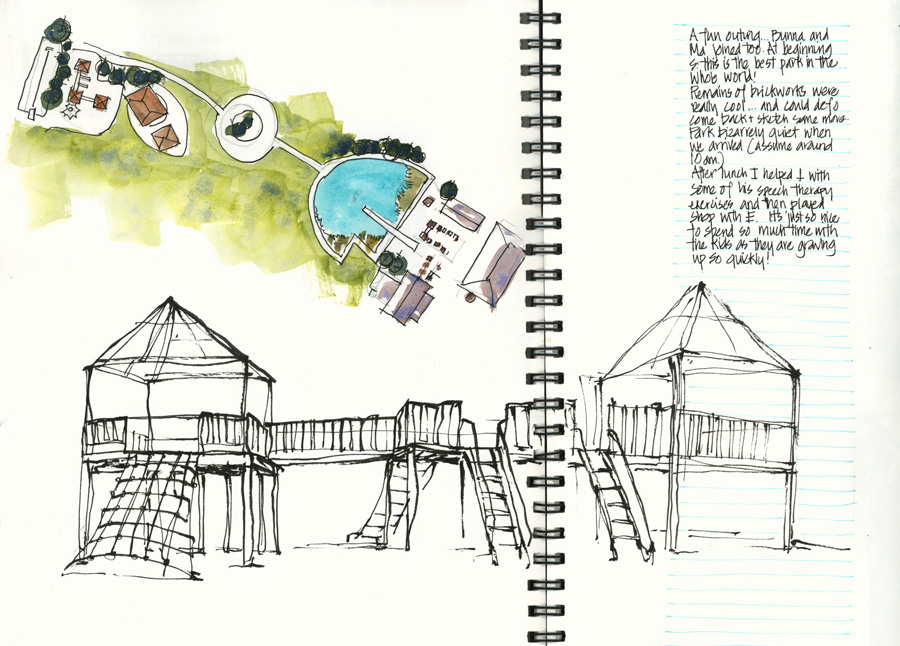 A fun outing... Bunna and
Ma joined too. At beginning
S: this is the best park in the
whole world!
Remains of brickworks were
really cool... and could def'o
come back + sketch some more
Park bizarrely quiet when
we arrived (assume around
10am)
After lunch I helped J with
some of his speech therapy
exercises and then played
shop with E. It's just so nice
to spend so much time with
the kids as they are growing
up so quickly!